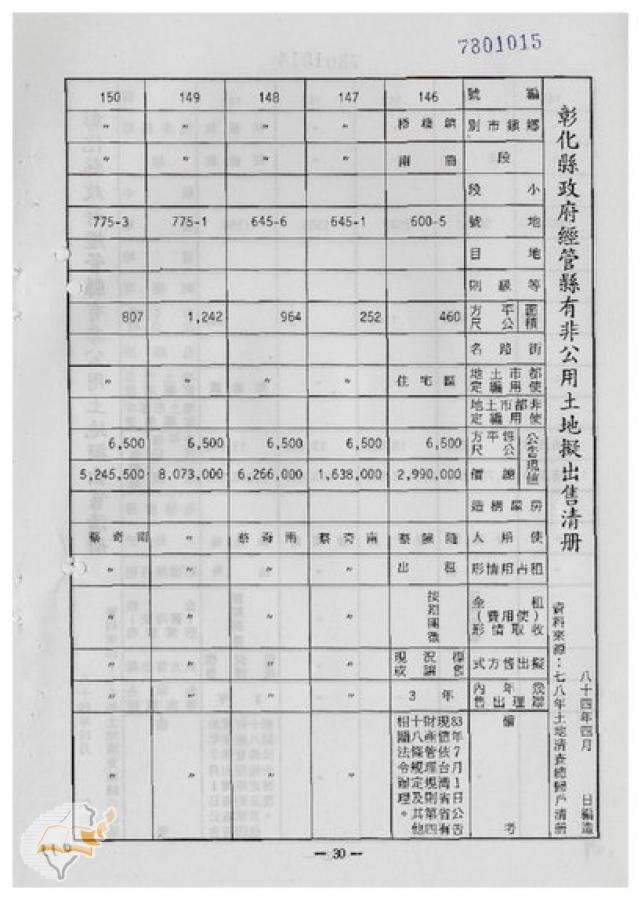 7801015
彰化縣政府經管縣有非公用土地擬出售清册
資料來源：七八年土地清查總歸戶清册
八十四年四月 日編造
編號 146 147 148 149 150
鄉鎮市別 〃 〃 〃 〃
段 〃 〃 〃 〃
小段
地號 600-5 645-1 645-6 775-1 775-3
地目
等級則
面積 平方公尺 460 252 964 1,242 807
街路名
都市土地使用編定 住宅區 〃 〃 〃 〃
非都市土地使用編定
公告現值 每平方公尺 6,500 6,500 6,500 6,500 6,500
總價 2,990,000 1,638,000 6,266,000 8,073,000 5,245,500
房屋構造
使用人 蔡陳隆 蔡奇南 蔡奇南 〃 蔡奇南
租占用情形 出租 〃 〃 〃 〃
租金(使用費)收取情形 按期開徵 〃 〃 〃 〃
擬出售方式 現況標售或讓售 〃 〃 〃 〃
幾年內辦理出售 3年 〃 〃 〃 〃
備考 83年7月1日公告現值依台灣省省有財產管理規則第四十八條規定及其他相關法令辦理。 〃 〃 〃 〃
— 30 —